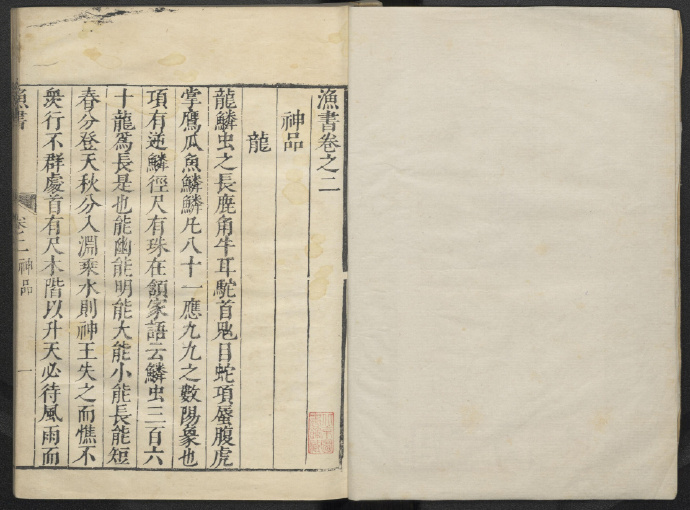 漁書卷之二
神品
龍
龍鱗虫之長鹿角牛耳駝首兎目蛇項蜃腹虎
掌鷹瓜魚鱗鱗凡八十一應九九之數陽象也
項有逆鱗徑尺有珠在頷家語云鱗虫三百六
十龍爲長是也能幽能明能大能小能長能短
春分登天秋分入淵乘水則神王失之而憔不
衆行不群處首有尺木階以升天必待風雨而
漁書
卷二神品
一